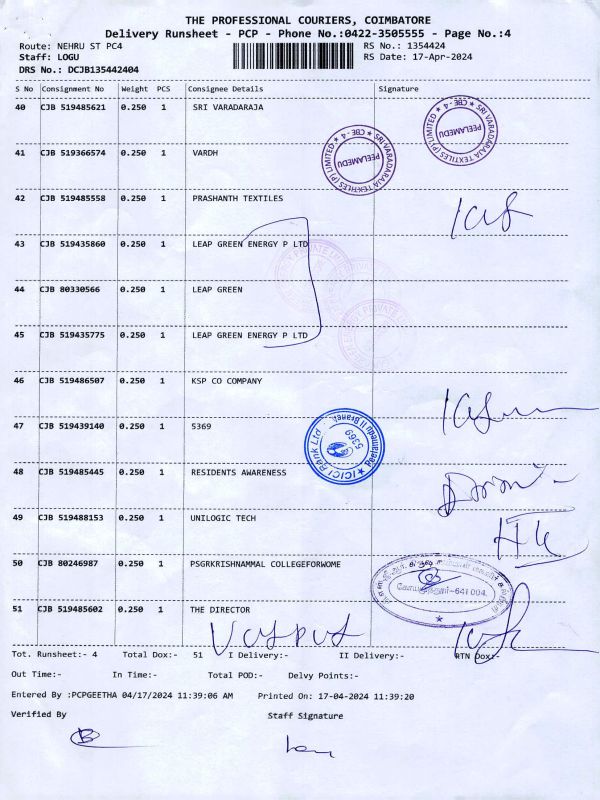 THE PROFESSIONAL COURIERS, COIMBATORE
Delivery Runsheet - PCP - Phone No.:0422-3505555 - Page No.:4
Route: NEHRU ST PC4 RS No.: 1354424
Staff: LOGU RS Date: 17-Apr-2024
DRS No.: DCJB135442404
S No Consignment No Weight PCS Consignee Details Signature
40 CJB 519485621 0.250 1 SRI VARADARAJA
SRI VARADARAJA TEXTILES (P) LIMITED ★ CBE - 4 ★
PEELAMEDU
41 CJB 519366574 0.250 1 VARDH
SRI VARADARAJA TEXTILES (P) LIMITED ★ CBE - 4 ★
PEELAMEDU
42 CJB 519485558 0.250 1 PRASHANTH TEXTILES
43 CJB 519435860 0.250 1 LEAP GREEN ENERGY P LTD
44 CJB 80330566 0.250 1 LEAP GREEN
45 CJB 519435775 0.250 1 LEAP GREEN ENERGY P LTD
46 CJB 519486507 0.250 1 KSP CO COMPANY
47 CJB 519439140 0.250 1 5369
★ ICICI Bank Ltd
5369
48 CJB 519485445 0.250 1 RESIDENTS AWARENESS
49 CJB 519488153 0.250 1 UNILOGIC TECH
50 CJB 80246987 0.250 1 PSGRKRISHNAMMAL COLLEGEFORWOME
கோயமுத்தூர்-641 004.
51 CJB 519485602 0.250 1 THE DIRECTOR
Tot. Runsheet:- 4 Total Dox:- 51 I Delivery:- II Delivery:- RTN Dox:-
Out Time:- In Time:- Total POD:- Delvy Points:-
Entered By :PCPGEETHA 04/17/2024 11:39:06 AM Printed On: 17-04-2024 11:39:20
Verified By Staff Signature